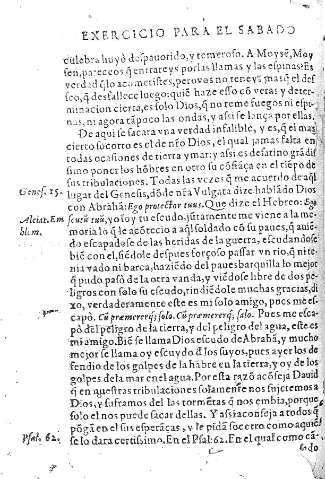 EXERCICIO PARA EL SABADO
culebra huyò despauorido, y temeroso. A Moysẽ, Moy
sen, pareceos q̃ entrareys por las llamas y las espinas? Es
verdad q̃ lo acometistes, pero vos no teneys mas q̃ el des
seo, q̃ desfallece luego: quiẽ haze esso cõ veras y deter-
minacion cierta, es solo Dios, q̃ no teme fuegos ni espi-
nas, ni agora tãpoco las ondas, y assi se lança por ellas.
De aqui se sacara vna verdad infalible, y es, q̃ el mas
cierto socorro es el de nr̃o Dios, el qual jamas falta en
todas ocasiones de tierra y mar: y assi es desatino grãdis
simo poner los hõbres en otro su cõfiãça en el tiẽpo de
sus tribulaciones. Todas las vezes q̃ me acuerdo de aq̃l
Genes. 15. lugar del Genesis, dõde nr̃a Vulgata dize hablãdo Dios
con Abrahã: Ego protector tuus. Que dize el Hebreo: Ego
Alciat. Em scutũ tuũ, yo soy tu escudo, jũtamente me viene a la me-
blem. moria lo q̃ le acõtecio a aq̃l soldado cõ su paues, q̃ auiẽ-
do escapado se de las heridas de la guerra, escudandose
biẽ con el, siẽdole despues forçoso passar vn rio, q̃ ni te-
nia vado ni barca, haziẽdo del paues barquilla lo mejor
q̃ pudo passò de la otra vanda, y viẽdose libre de dos pe-
ligros con solo su escudo, rindiẽdole muchas gracias, di-
xo, verdaderamente este es mi solo amigo, pues me es-
capò. Cũ præmererq; solo. Cũ præmererq; salo. Pues me esca-
pò del peligro de la tierra, y del peligro del agua, este es
mi amigo. Biẽ se llama Dios escudo de Abrahã, y mucho
mejor se llama oy escuydo de los suyos, pues ayer los de
fendio de los golpes de la hãbre en la tierra, y oy de los
golpes de la mar en el agua. Por esta razõ acõseja Dauid
q̃ en nuestras tribulaciones solamente nos sujetemos a
Dios, y suframos del las tormẽtas q̃ nos embia, porque
solo el nos puede sacar dellas. Y assi aconseja a todos q̃
põgã en el sus esperãças, y le pidã socorro como a quiẽ
Psal. 62. se lo dara certissimo. En el Psal. 62. En el qual como cã-
sado